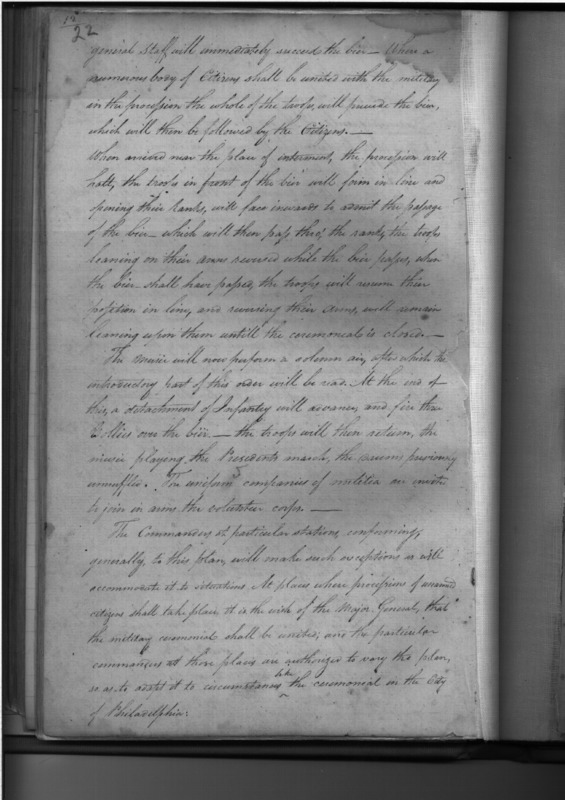 12
22
general Staff will immediately succeed the bier — Where a
numerous body of Citizens shall be united with the military
in the procession the whole of the troops, will precede the bier,
which will then be followed by the Citizens. —
When arrived near the place of interment, the procession will
halt, the troops in front of the bier will form in line and
opening their ranks, will face inwards to admit the passage
of the bier — which will then pass thro' the ranks, the troops
leaning on their arms reversed while the bier passes, when
the bier shall have passed, the troops will resume their
position in line, and reversing their arms, will remain
leaning upon them untill the ceremonial is closed. —
The music will now perform a solemn air, after which the
introductory part of this order will be read. At the end of
this, a detachment of Infantry will advance, and fire three
Vollies over the bier — the troops will then return, the
music playing the Presidents march, the drums previously
unmuffled. The uniform'd companies of militia are invited
to join in arms the volunteer corps. —
The Commanders at particular stations, conforming,
generally, to this plan, will make such exceptions as will
accommodate it to situations. At places where processions of unarmed
citizens shall take place it is the wish of the Major General, that
the military ceremonial shall be united; and the particular
commanders at those places are authorized to vary the plan,
so as to adapt it to circumstances the ceremonial in the City
of Philadelphia: